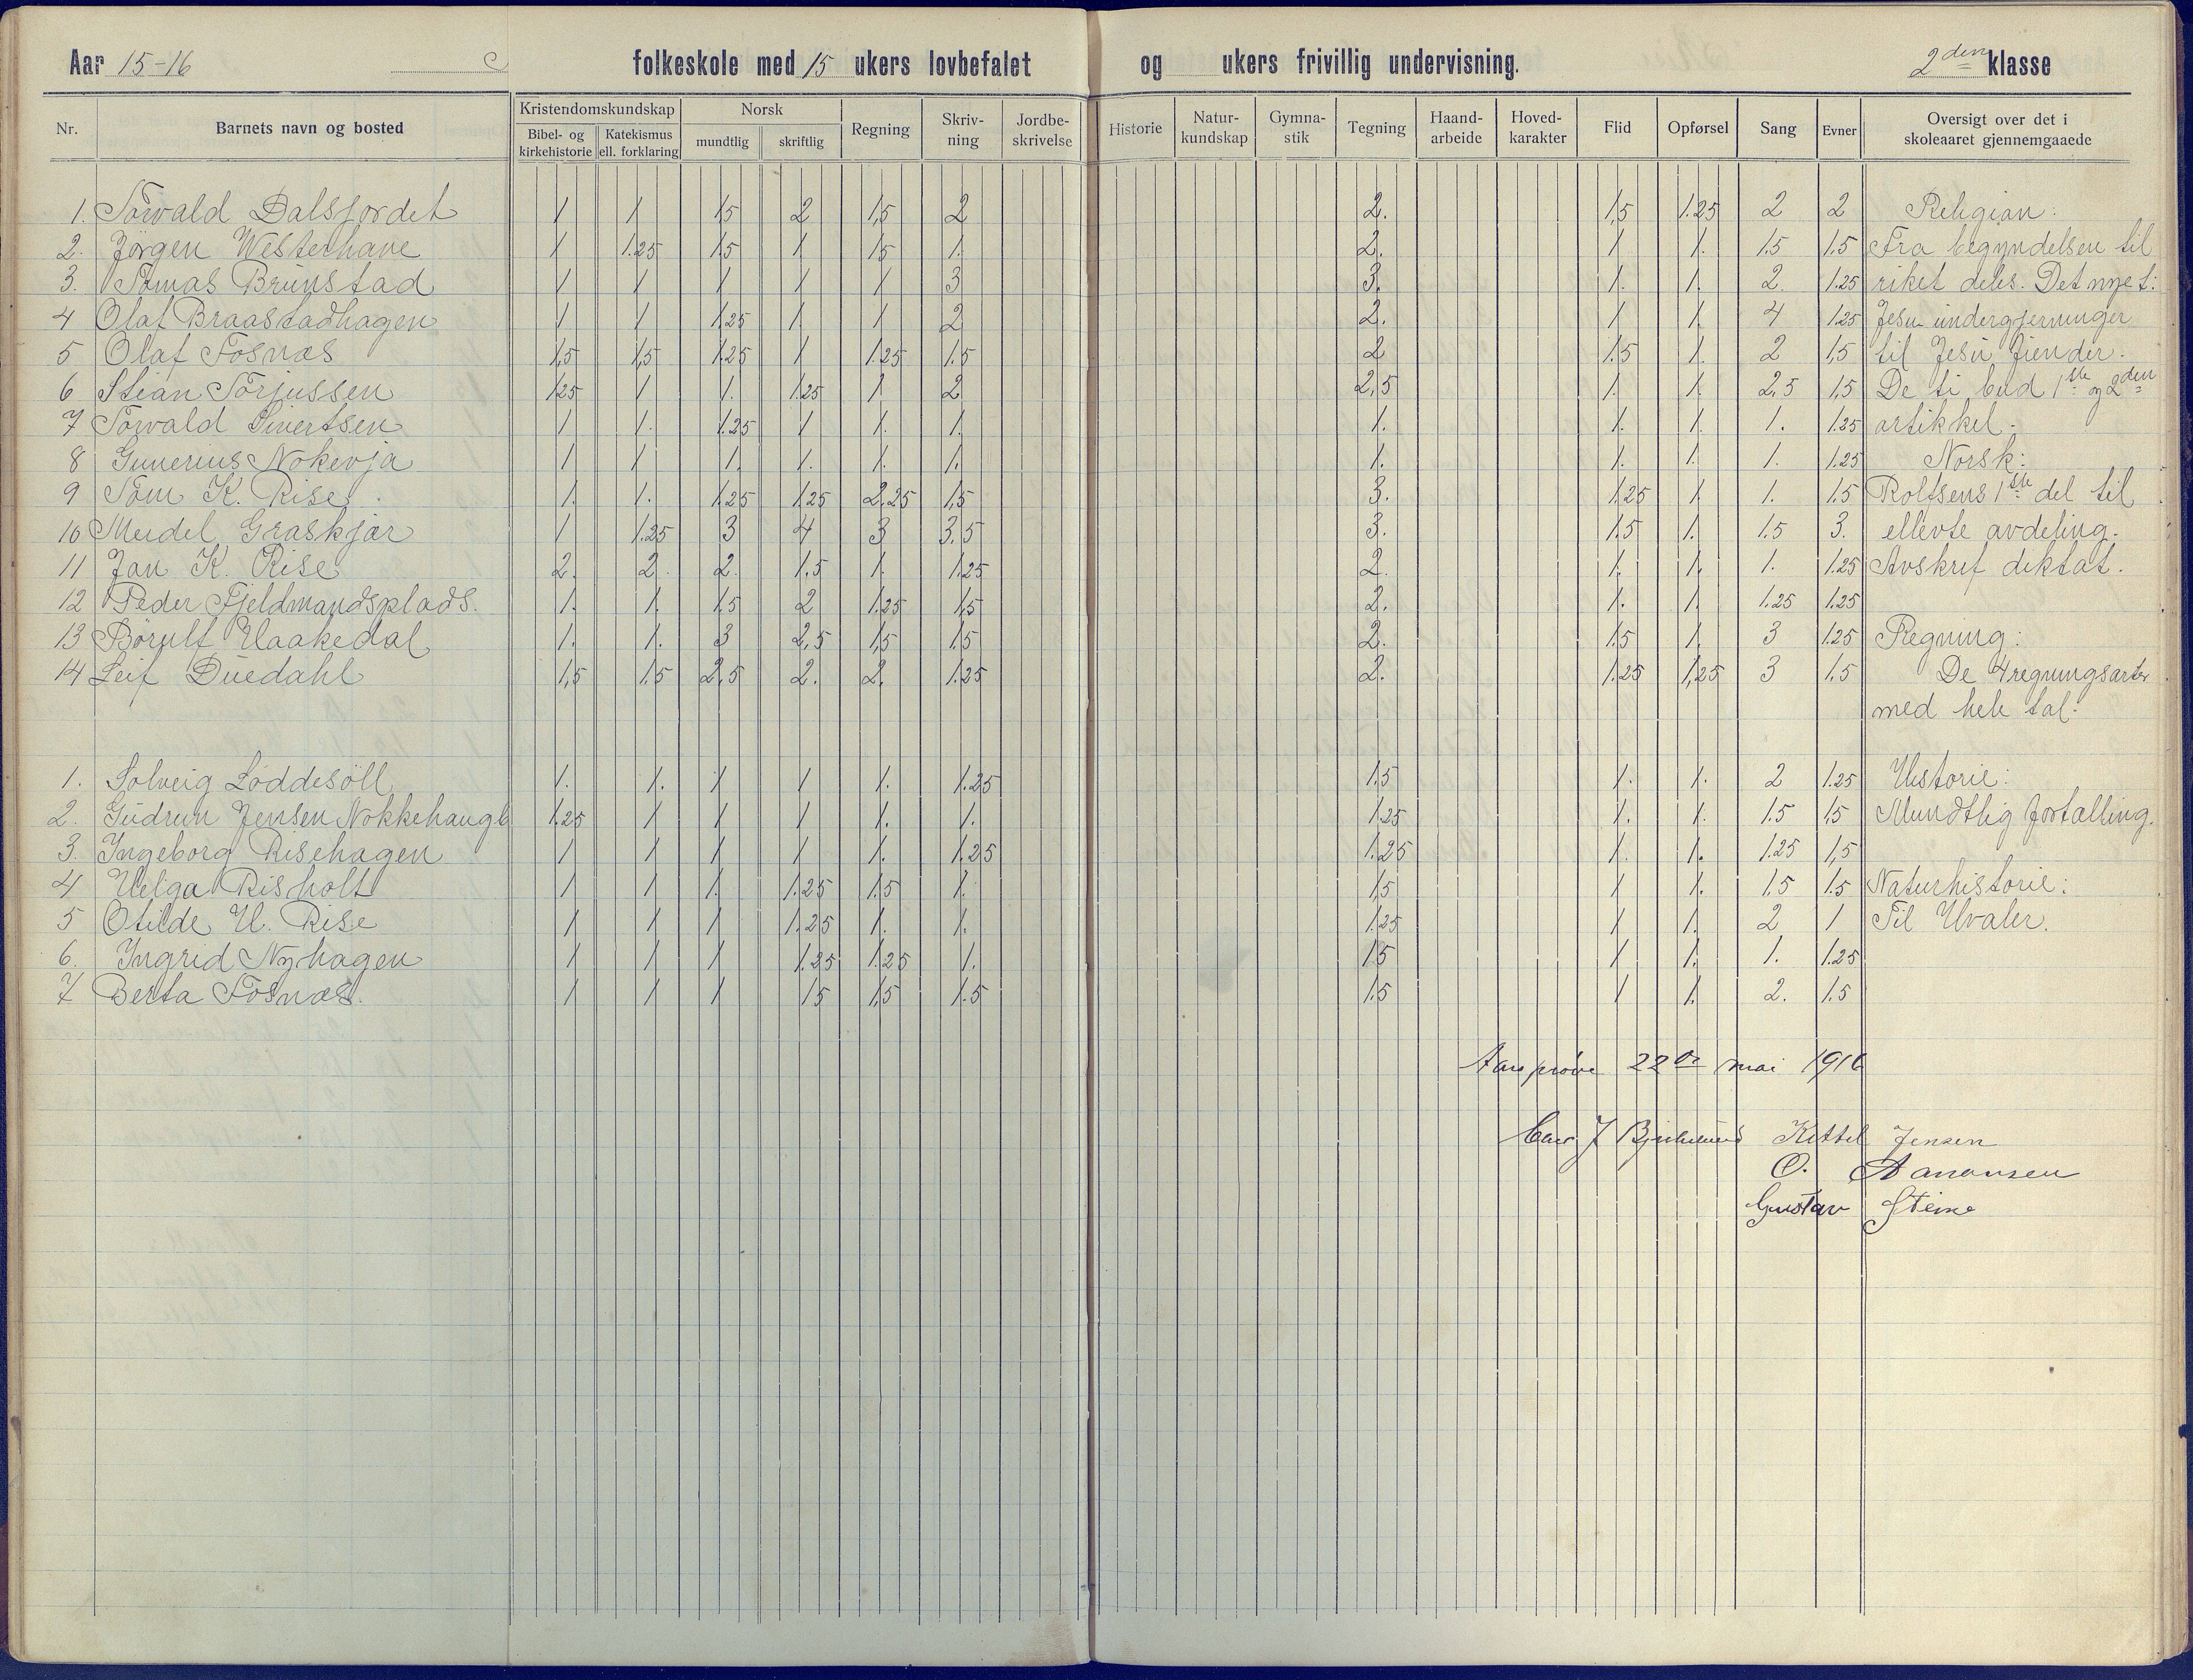 Aar 15-16 folkeskole med 15 ukers lovbefalet og ukers frivillig undervisning. 2den klasse
Nr. Barnets navn og bosted Kristendomskundskap Norsk Regning Skriv-ning Jordbe-skrivelse Historie Natur-kundskap Gymna-stik Tegning Haand-arbeide Hoved-karakter Flid Opførsel Sang Evner Oversigt over det i skoleaaret gjennemgaaede
Bibel- og kirkehistorie Katekismus ell. forklaring mundtlig skriftlig
1. Torvald Dalsfordet 1 1 1,5 2 1,5 2 2. 1,5 1.25 2 2 Religion:
2. Jörgen Westerhave 1 1.25 1.5 1 1.5 1. 2. 1 1. 1.5 1.5 Fra begyndelsen til
3. Tomas Brunstad 1 1 1 1 1 3 3. 1. 1. 2. 1.25 riket deles. Det nye t:
4 Olaf Braastadhagen 1 1 1.25 1. 1 2 2. 1 1. 4 1.25 Jesu undergjerninger
5 Olaf Fosnæs 1,5 1,5 1.25 1 1.25 1.5 2 1.5 1. 2 1,5 til Jesu fiender.
6 Stian Torjussen 1.25 1 1. 1.25 1 2 2,5 1. 1. 2,5 1,5 De ti bud 1ste og 2den
7 Torvald Sivertsen 1 1. 1.25 1 1. 1. 1. 1. 1. 1. 1.25 artikkel.
8 Gunerius Nokevja 1 1 1. 1. 1. 1. 1. 1. 1. 1. 1.25 Norsk:
9 Tom K. Rise 1. 1. 1.25 1.25 2.25 1,5 3. 1.25 1 1. 1.5 Rolfsens 1ste del til
10 Meidel Graskjær 1 1.25 3 4 3 3.5 3. 1.5 1. 1.5 3. ellevte avdeling.
11 Jan K. Rise 2. 2. 2. 1.5 1. 1.25 2. 1. 1. 1. 1.25 Avskrift diktat.
12 Peder Fjeldmandsplads. 1. 1. 1.5 2 1.25 1,5 2. 1. 1. 1.25 1.25
13 Börulf Haakedal 1. 1. 3 2,5 1,5 1.5 2. 1.5 1. 3 1.25 Regning:
14 Leif Duedahl 1,5 1.5 2.5 2. 2. 1.25 2. 1.25 1,25 3 1.5 De 4 regningsarter
med hele tal.
1. Solveig Löddesöll 1. 1. 1 1 1. 1.25 1.5 1. 1. 2 1.25 Historie:
2. Gudrun Jensen Nokkehaugb 1.25 1 1 1 1. 1. 1.25 1. 1. 1.5 1,5 Mundtlig fortælling.
3. Ingeborg Risehagen 1 1 1 1 1. 1.25 1.25 1. 1. 1.25 1,5
4 Helga Risholt 1 1 1. 1.25 1.5 1. 1,5 1 1. 1.5 1.5 Naturhistorie:
5 Otilde H. Rise 1 1 1 1.25 1. 1. 1.25 1 1. 2 1 Til Hvaler.
6. Ingrid Nyhagen 1 1 1 1.25 1.25 1. 1.5 1 1. 1. 1.25
7 Berta Fosnæs. 1 1 1 1.5 1,5 1.5 1.5 1 1. 2. 1.5
Aarsprøve 22de mai 1916
J Kittel Jensen
O. Aanonsen
Gustav Steine